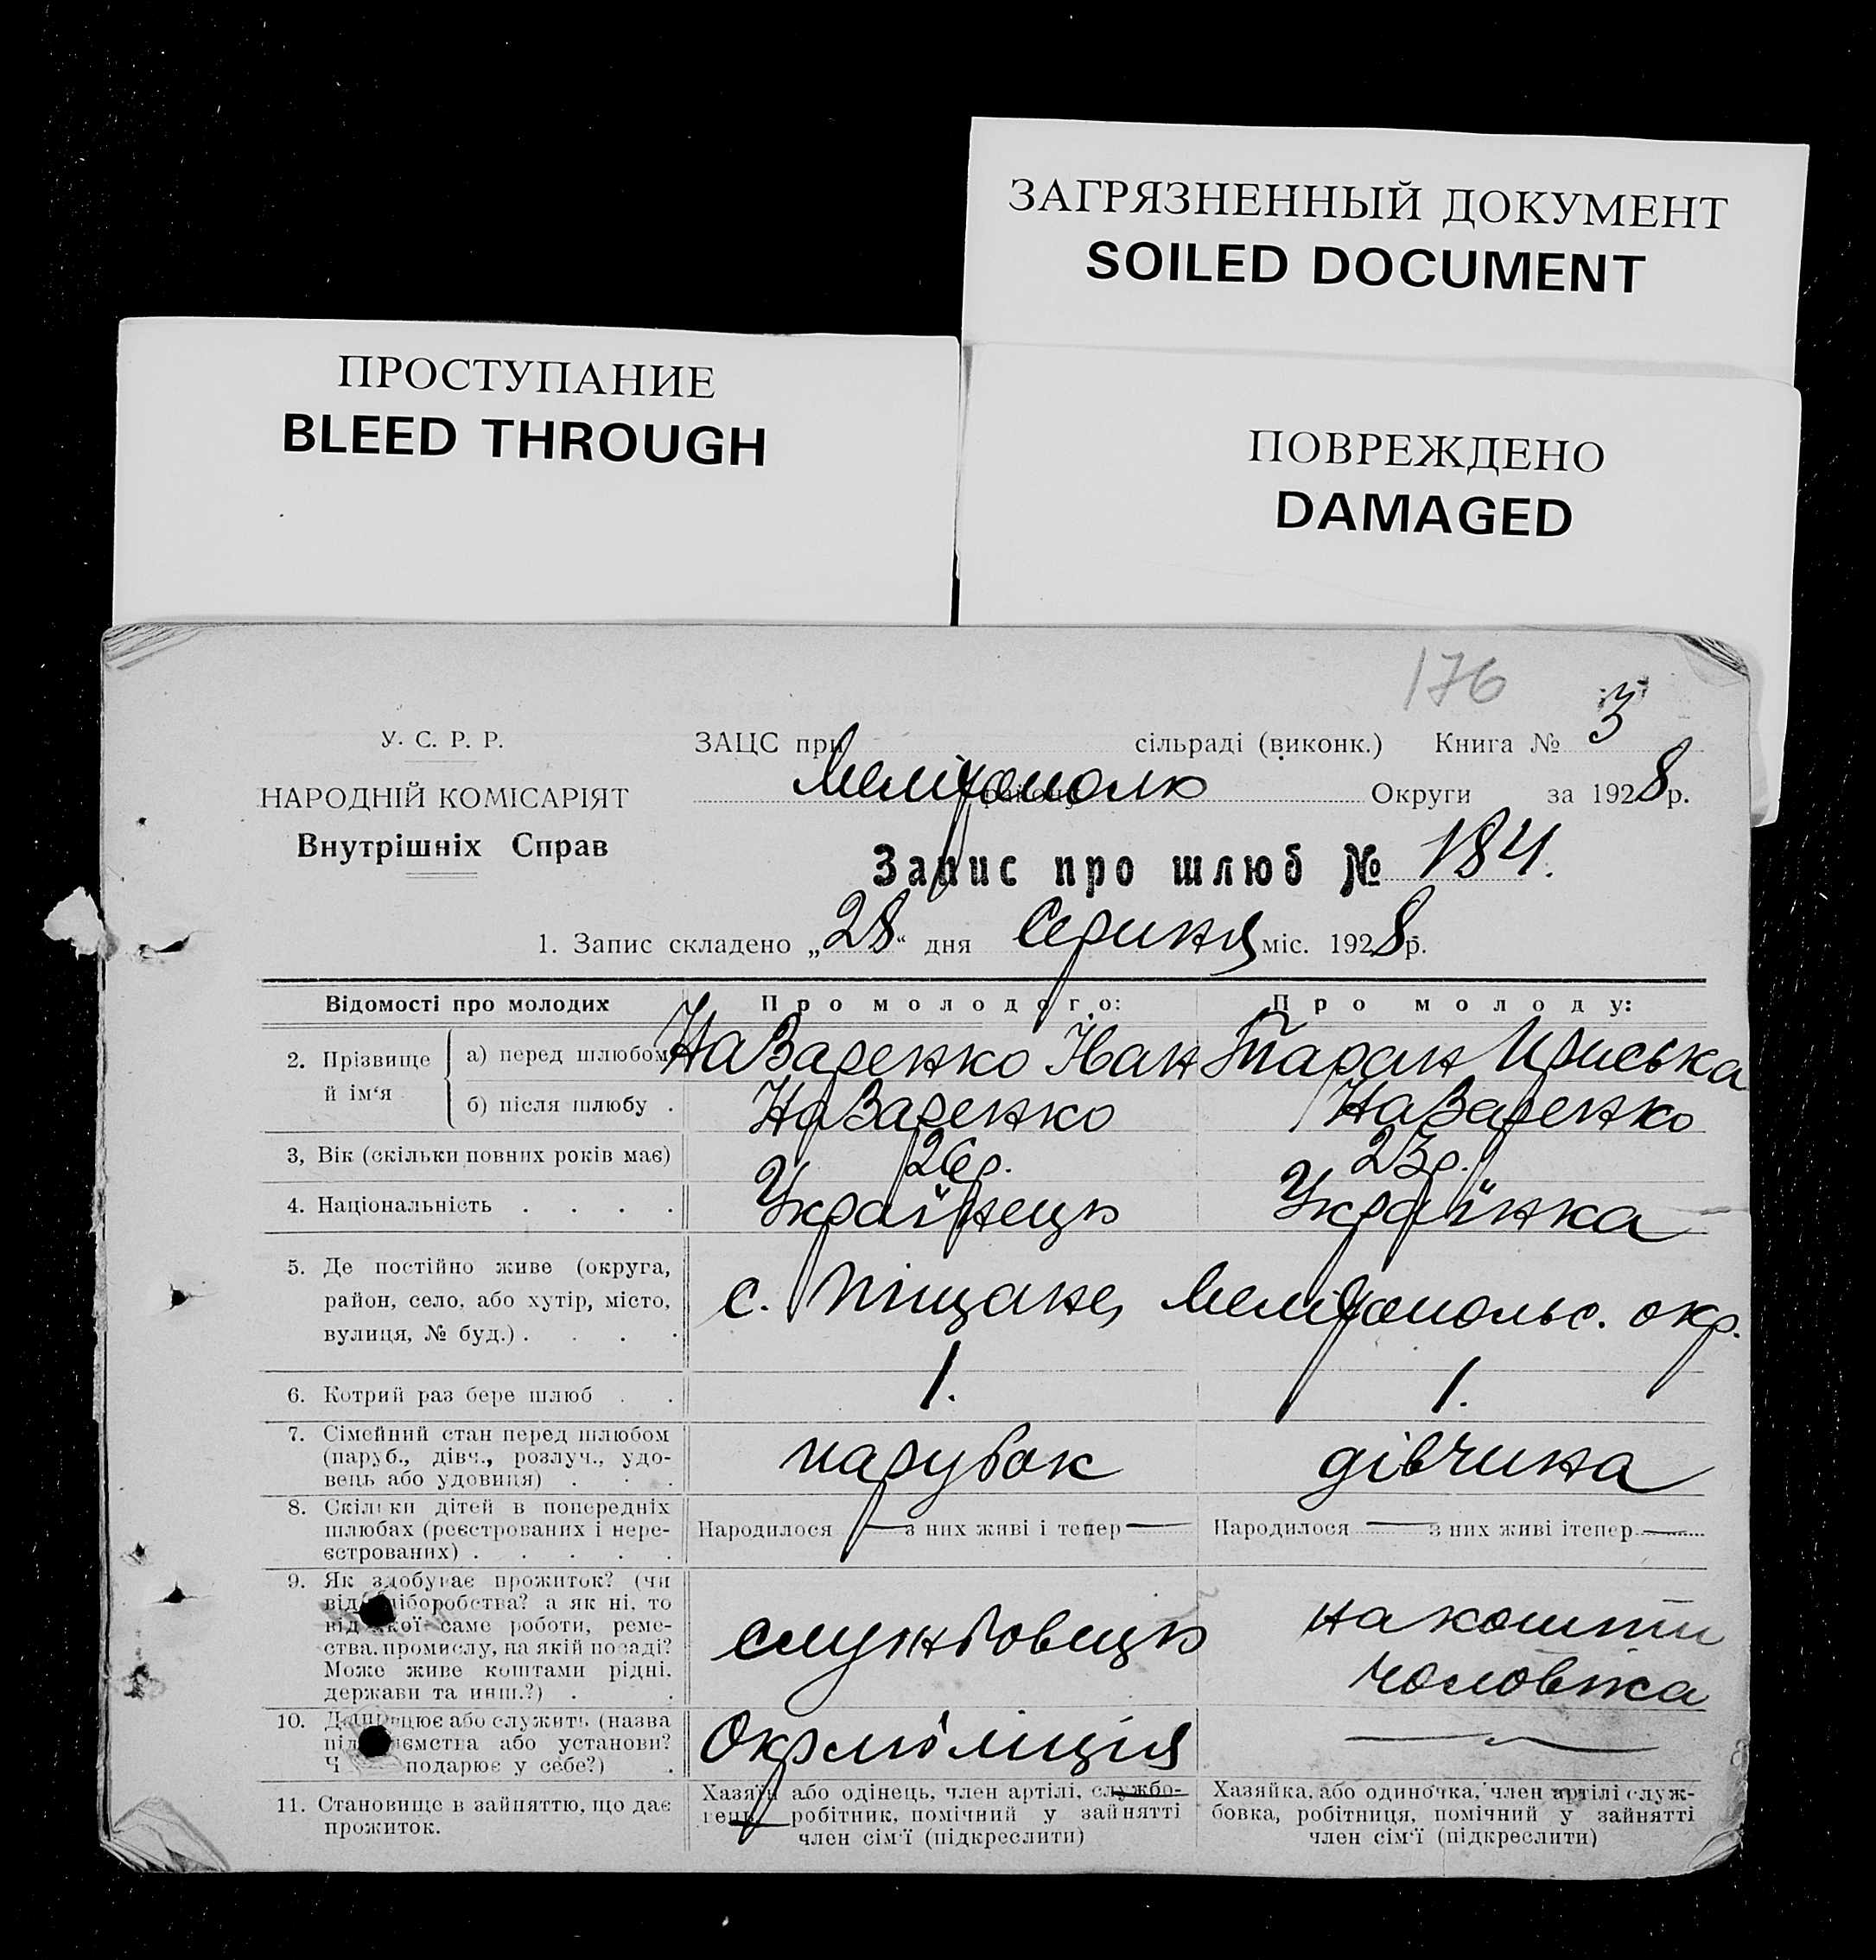 ЗАГРЯЗНЕННЫЙ ДОКУМЕНТ
SOILED DOCUMENT
ПРОСТУПАНИЕ
BLEED THROUGH
ПОВРЕЖДЕНО
DAMAGED
176
У. С. Р. Р.
НАРОДНІЙ КОМІСАРІЯТ
Внутрішніх Справ
ЗАЦС при сільраді (виконк.) Книга № 3
району Округи за 1928 р.
Запис про шлюб № 184.
1. Запис складено „28“ дня Серпня міс. 1928 р.
Відомості про молодих
Про молодого:
Про молоду:
2. Прізвище й ім‘я
а) перед шлюбом
Назаренко Іван
Таран Приська
б) після шлюбу .
Назаренко
Назаренко
3, Вік (скільки повних років має)
26 р.
23 р.
4. Національність . . . .
Українець
Українка
5. Де постійно живе (округа,
район, село, або хутір, місто,
вулиця, № буд.) . . . .
с. Піщане, Мелітопольс. окр.
6. Котрий раз бере шлюб . .
1.
1.
7. Сімейний стан перед шлюбом
(паруб., дівч., розлуч., удо-
вець або удовиця) . . .
парубок
дівчина
8. Скільки дітей в попередніх
шлюбах (реєстрованих і нере-
єстрованих) . . . . .
Народилося — з них живі і тепер —
Народилося — з них живі ітепер —
9. Як здобуває прожиток? (чи
від ліборобства? а як ні, то
від кої саме роботи, реме-
ства, промислу, на якій посаді?
Може живе коштами рідні,
держави та инш.?) . .
службовець
на кошти
чоловіка
10. Де працює або служить (назва
під ємства або установи?
Ч подарює у себе?) .
Окрміліція
—
11. Становище в зайняттю, що дає
прожиток.
Хазяїн або одінець, член артілі, службо-
вець робітник, помічний у зайнятті
член сім‘ї (підкреслити)
Хазяйка, або одиночка, член артілі служ-
бовка, робітниця, помічний у зайнятті
член сім‘ї (підкреслити)